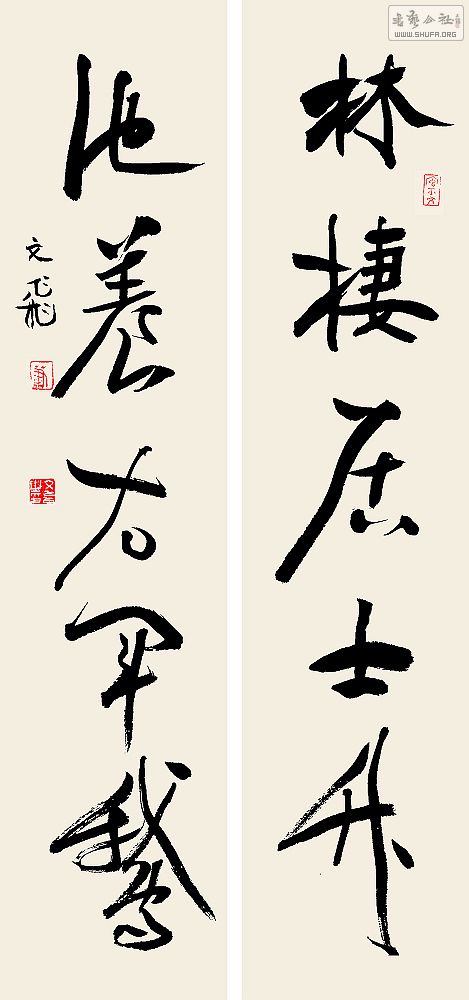 書藝公社
WWW.SHUFA.ORG
林棲居士竹
池養右軍鵝
文飛